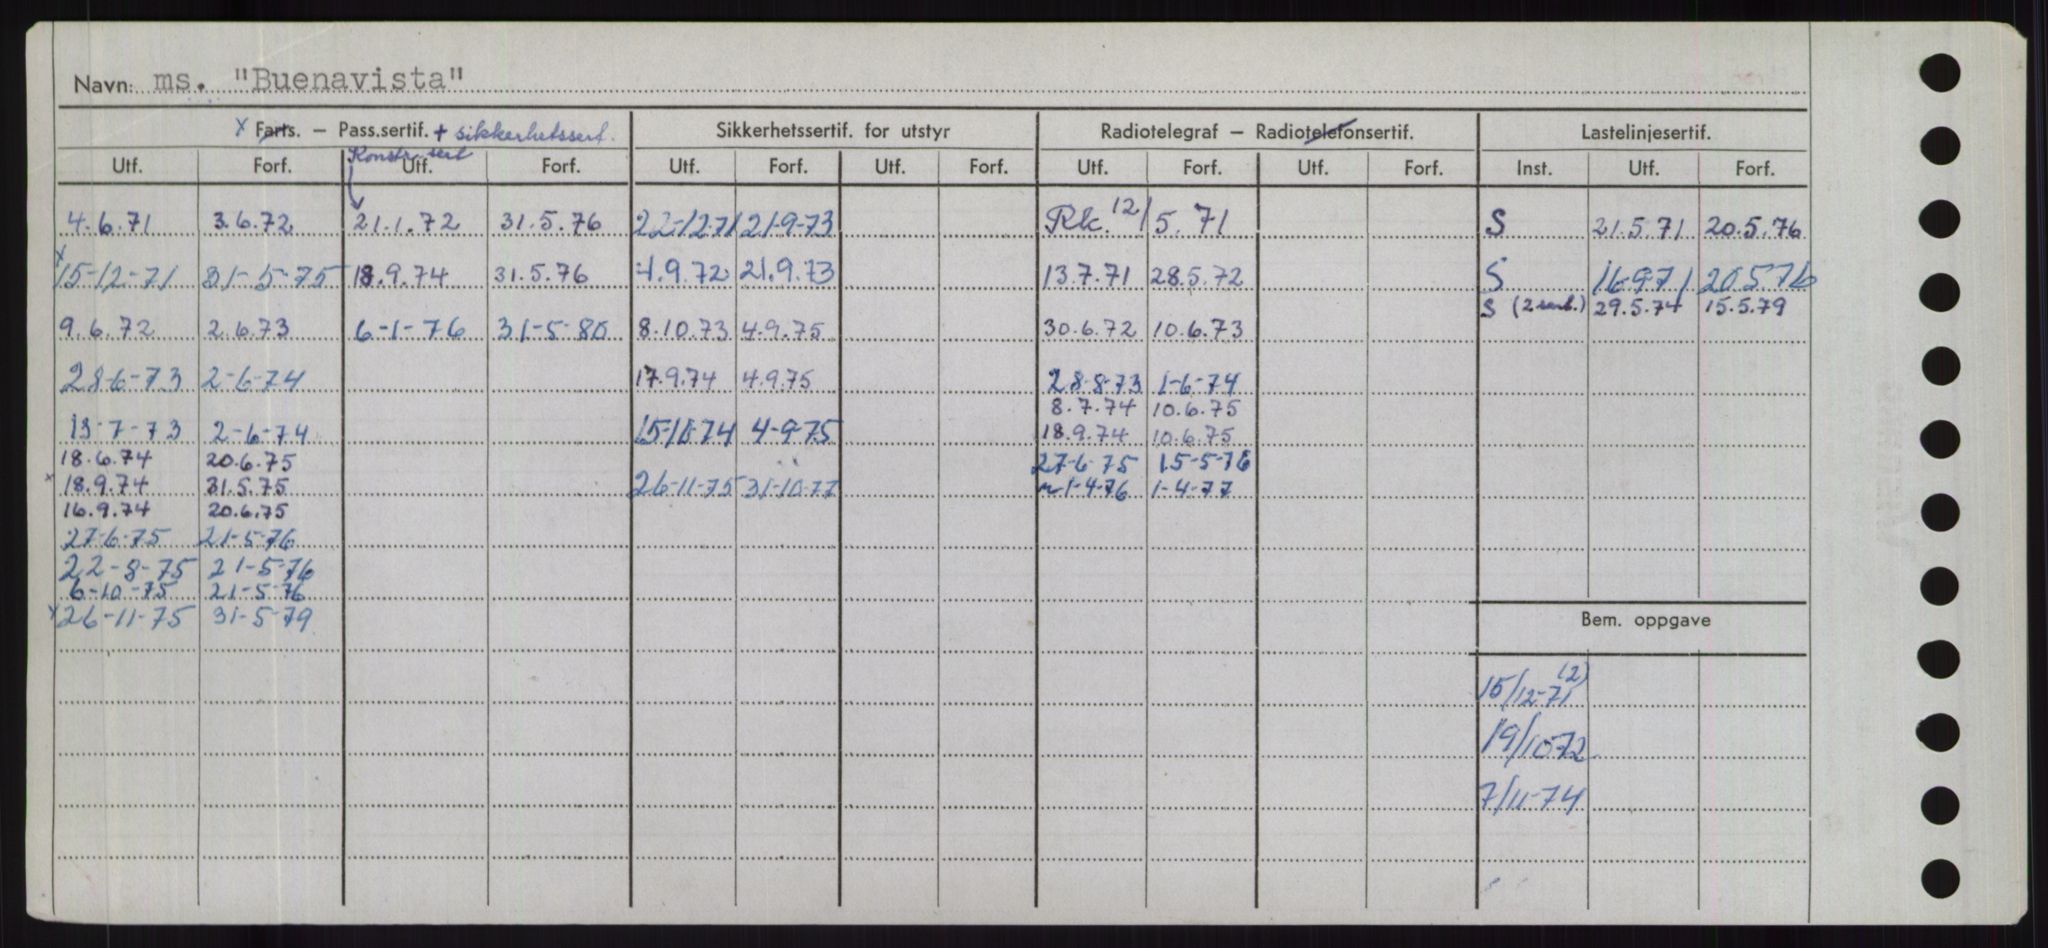 Navn: ms. "Buenavista"
x Farts. – Pass.sertif. + sikkerhetssert. Sikkerhetssertif. for utstyr Radiotelegraf – Radiotelefonsertif. Lastelinjesertif.
Konstr. sert
Utf. Forf. Utf. Forf. Utf. Forf. Utf. Forf. Utf. Forf. Utf. Forf. Inst. Utf. Forf.
4.6.71 3.6.72 21.1.72 31.5.76 22-12-71 21-9-73 Rk. 12/5.71 S 21.5.71 20.5.76
x 15-12-71 31-5-75 18.9.74 31.5.76 4.9.72 21.9.73 13.7.71 28.5.72 S 16-9-71 20.5.76
S (2 sert.) 29.5.74 15.5.79
9.6.72 2.6.73 6-1-76 31-5-80 8.10.73 4.9.75 30.6.72 10.6.73
28-6-73 2-6-74 17.9.74 4.9.75 28-8-73 1-6-74
8.7.74 10.6.75
13-7-73 2-6-74 15-11-74 4-9-75 18.9.74 10.6.75
18.6.74 20.6.75 27-6-75 15-5-76
x 18.9.74 31.5.75 26-11-75 31-10-77 1-4-76 1-4-77
16.9.74 20.6.75
27-6-75 21-5-76
22-8-75 21-5-76
6-10-75 21-5-76
x 26-11-75 31-5-79
Bem. oppgave
15/12-71 (2)
19/10-72
7/11-74